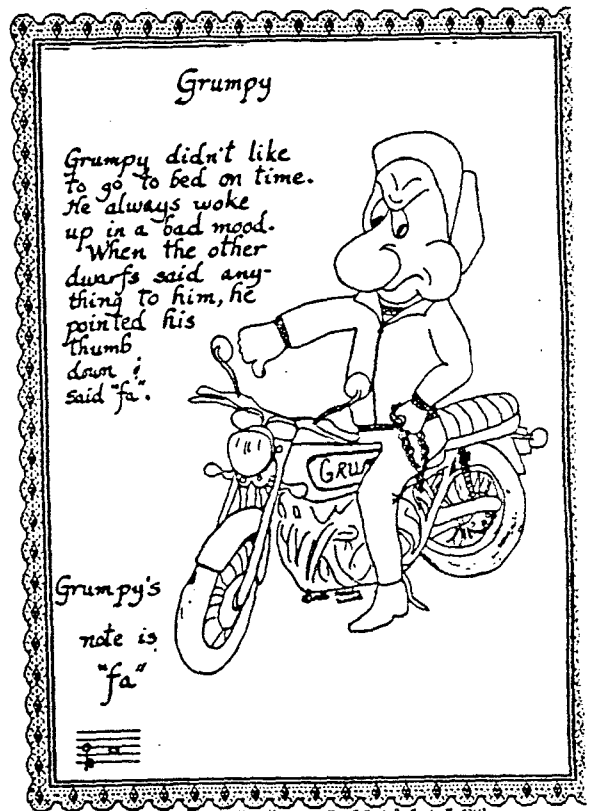 Grumpy
Grumpy didn't like
to go to bed on time.
He always woke
up in a bad mood.
When the other
dwarfs said any-
thing to him, he
pointed his
thumb
down &
said "fa".
GRUM
Grumpy's
note is
"fa"